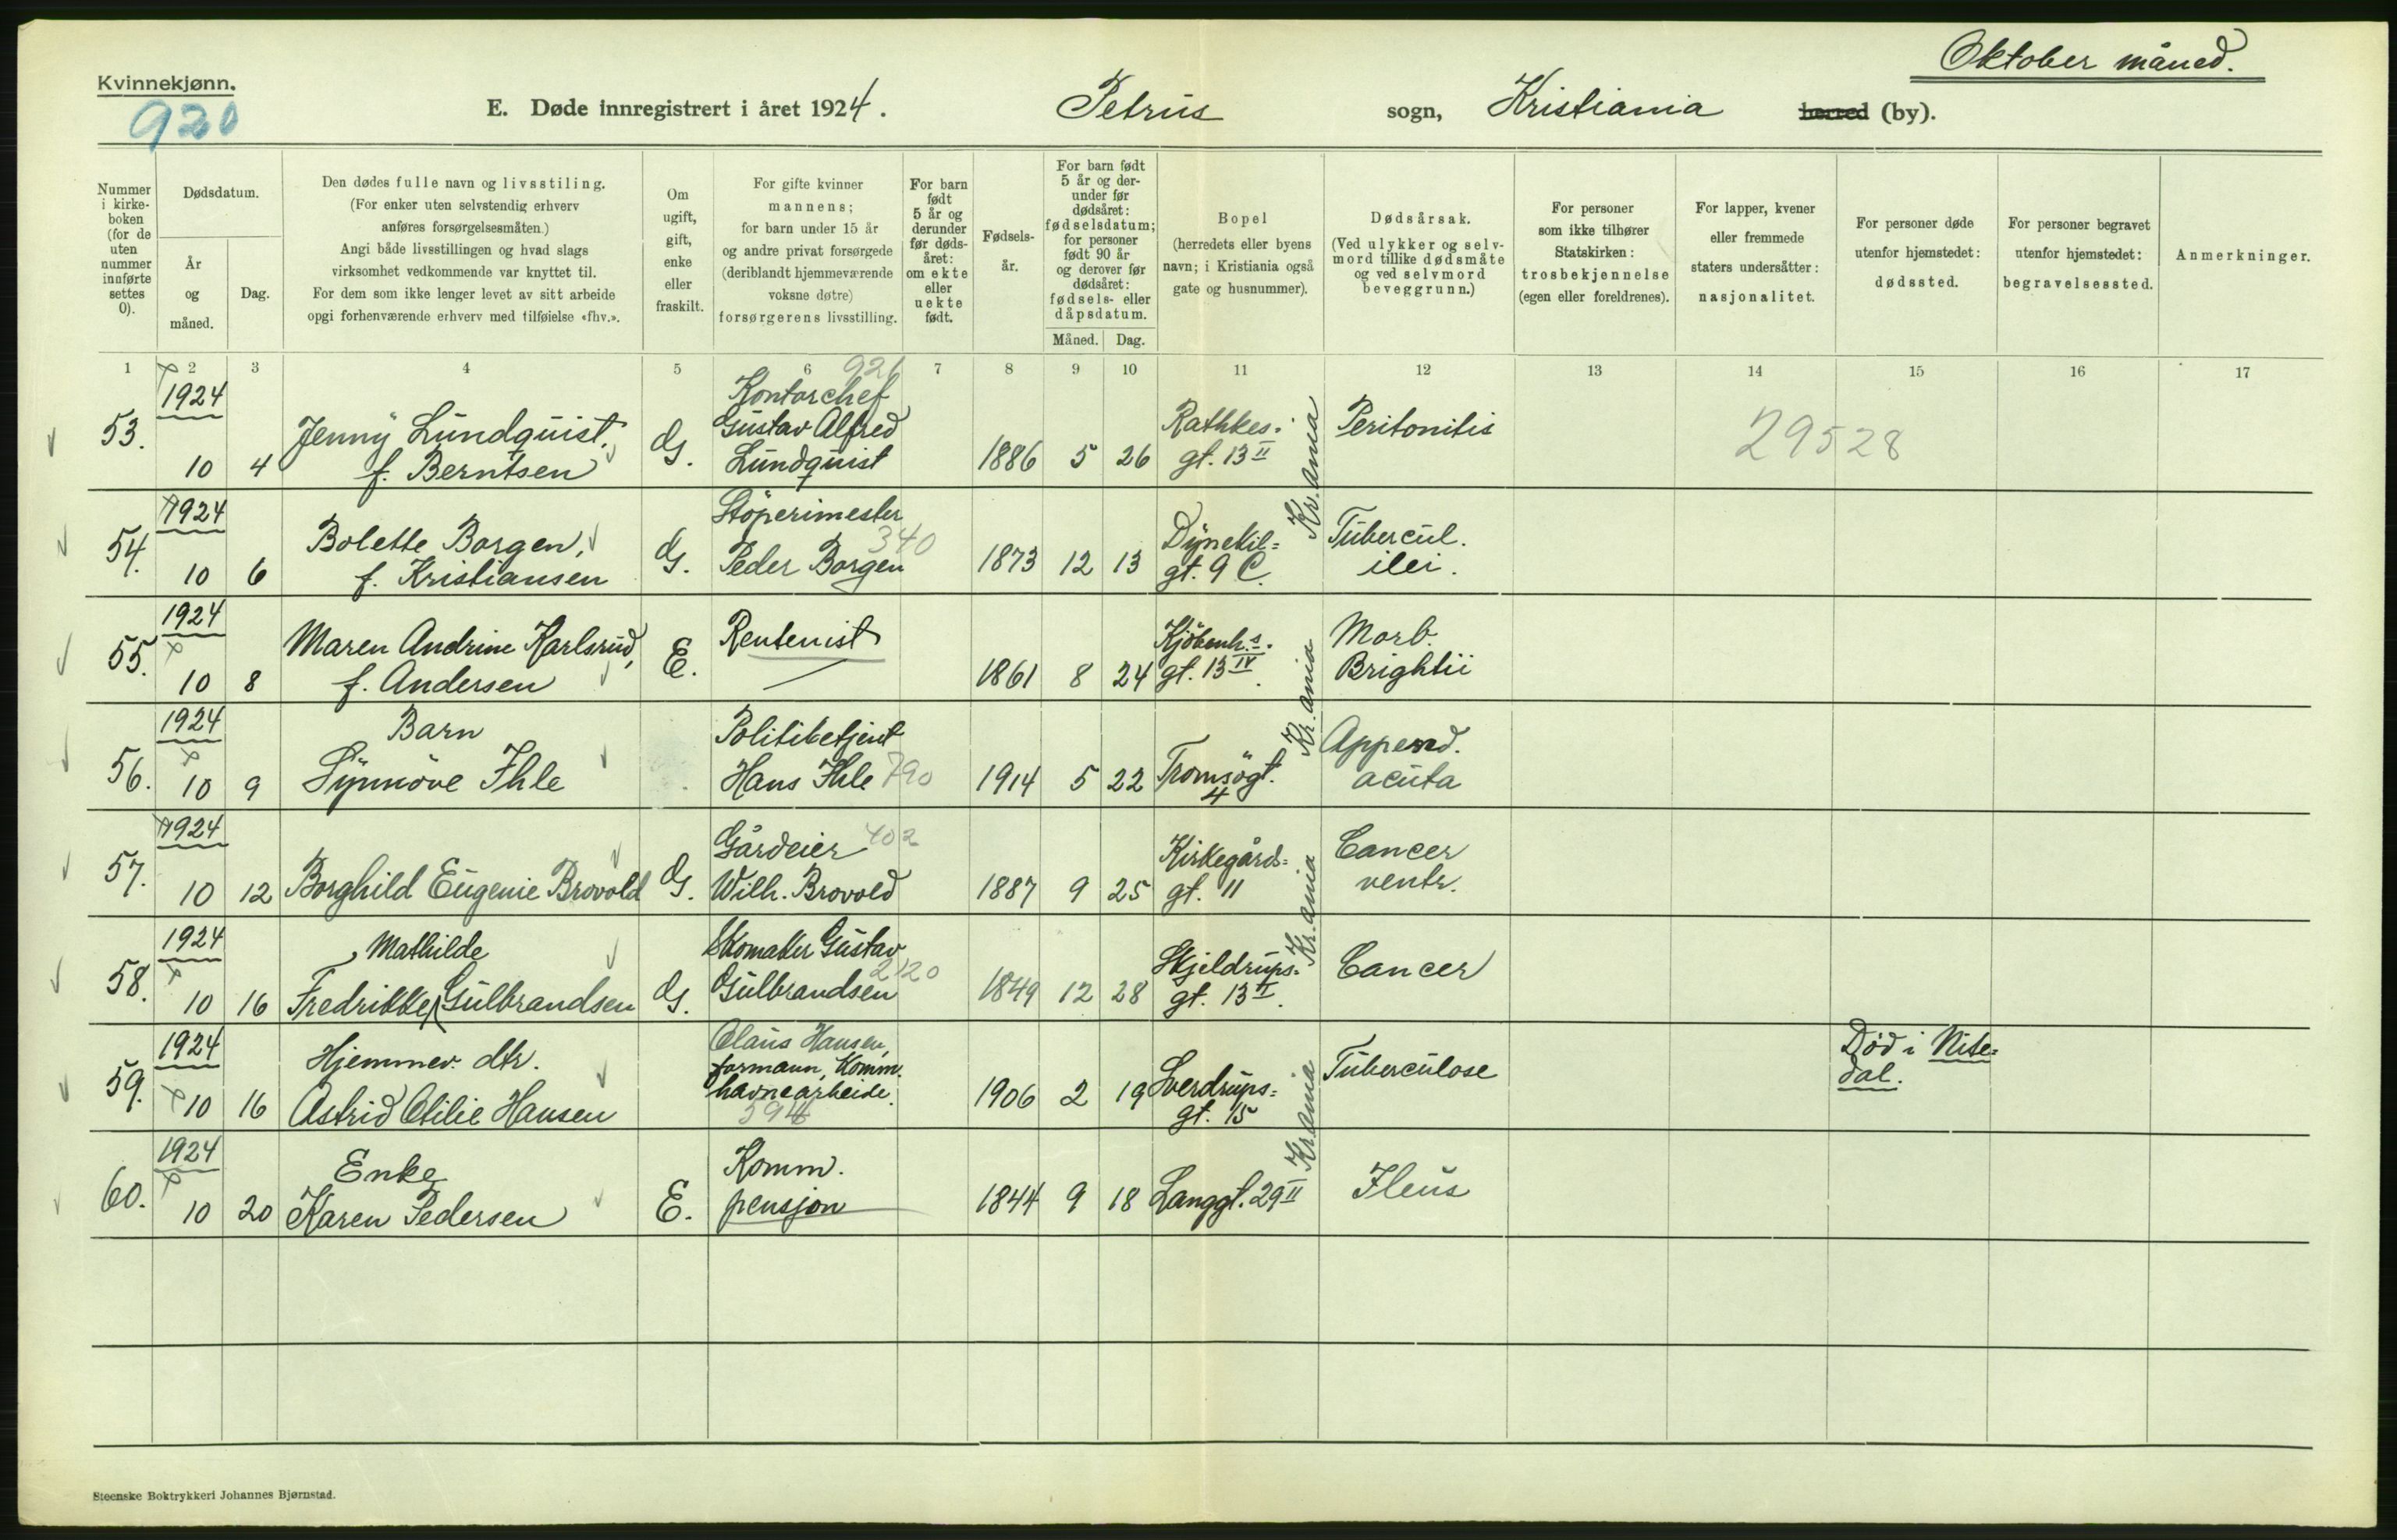 Oktober måned.
Kvinnekjønn.
920
E. Døde innregistrert i året 1924. Petrus sogn, Kristiania herred (by).
Nummer i kirke-boken (for de uten nummer innførte settes 0).
Dødsdatum.
År og måned.
Dag.
Den dødes fulle navn og livsstiling.
(For enker uten selvstendig erhverv
anføres forsørgelsesmåten.)
Angi både livsstillingen og hvad slags
virksomhet vedkommende var knyttet til.
For dem som ikke lenger levet av sitt arbeide
opgi forhenværende erhverv med tilføielse «fhv.».
Om ugift, gift, enke eller fraskilt.
For gifte kvinner
mannens;
for barn under 15 år
og andre privat forsørgede
(deriblandt hjemmeværende
voksne døtre)
forsørgerens livsstilling.
For barn født 5 år og derunder før døds-året: om ekte eller uekte født.
Fødsels-år.
For barn født 5 år og der-under før dødsåret: fødselsdatum; for personer født 90 år og derover før dødsåret: fødsels- eller dåpsdatum.
Måned. Dag.
Bopel
(herredets eller byens
navn; i Kristiania også
gate og husnummer).
Dødsårsak.
(Ved ulykker og selv-
mord tillike dødsmåte
og ved selvmord
beveggrunn.)
For personer
som ikke tilhører
Statskirken:
trosbekjennelse
(egen eller foreldrenes).
For lapper, kvener
eller fremmede
staters undersåtter:
nasjonalitet.
For personer døde
utenfor hjemstedet:
dødssted.
For personer begravet
utenfor hjemstedet:
begravelsessted.
Anmerkninger.
1 2 3 4 5 6 7 8 9 10 11 12 13 14 15 16 17
53. 1924 10 4
Jenny Lundquist,
f. Berntsen
G.
921
Kontorchef
Gustav Alfred
Lundquist
1886 5 26
Rathkes-
gt. 13 II
Kr.ania
Peritonitis
29528
54. 1924 10 6
Bolette Borgen,
f. Kristiansen
G.
Støperimester
340
Peder Borgen
1873 12 13
Dynekil=
gt. 9 C.
Tubercul.
ilei.
55. 1924 10 8
Maren Andrine Karlsrud,
f. Andersen
E.
Rentenist
1861 8 24
Kjøbenh.s.
gt. 13 IV.
Kr.ania
Morb.
Brightii
56. 1924 10 9
Barn
Synnøve Ihle
Politibetjent
Hans Ihle 790
1914 5 22
Tromsøgt.
4
Append.
acuta
57. 1924 10 12
Borghild Eugenie Brovold
G.
Gårdeier 402
Wilh. Brovold
1887 9 25
Kirkegård=
gt. 11
Kr.ania
Cancer
ventr.
58. 1924 10 16
Mathilde
Fredrikke Gulbrandsen
G.
Skomaker Gustav
2120
Gulbrandsen
1849 12 28
Skjeldrups-
gt. 13 I.
Cancer
59. 1924 10 16
Hjemmev. dtr.
Astrid Otilie Hansen
Claus Hansen,
formann, Komm.
havnearbeide.
594
1906 2 19
Sverdrups=
gt. 15
Kr.ania
Tuberculose
Død i Nite=
dal.
60. 1924 10 20
Enke
Karen Pedersen
E.
Komm.
pensjon
1844 9 18
Langgt. 29 II
Ileus
Steenske Boktrykkeri Johannes Bjørnstad.